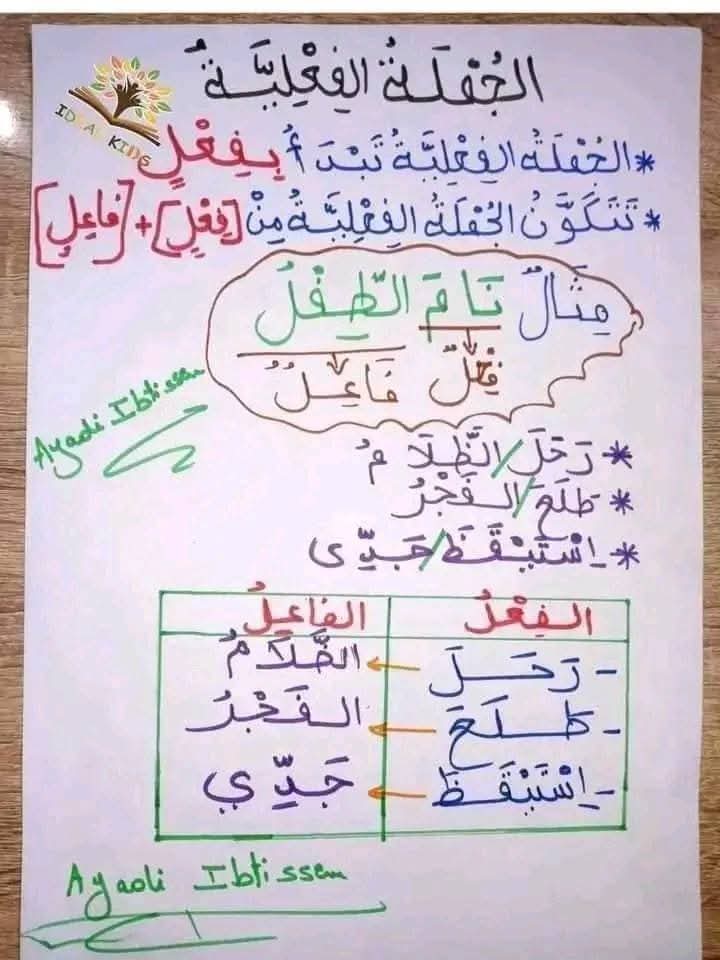 الجُمْلَةُ الفِعْلِيَّةُ
IDEAL KIDS
* الجُمْلَةُ الفِعْلِيَّةُ تَبْدَأُ بِفِعْلٍ
* تَتَكَوَّنُ الجُمْلَةُ الفِعْلِيَّةُ مِنْ [فِعْلٍ] + [فاعِلٍ]
مِثَالٌ نَامَ الطِّفْلُ
فِعْلٌ فَاعِلٌ
Ayadi Ibtissem
* رَحَلَ / الظَّلَامُ
* طَلَعَ / الفَجْرُ
* اِسْتَيْقَظَ / جَدِّي
الفِعْلُ الفاعِلُ
- رَحَلَ الظَّلَامُ
- طَلَعَ الفَجْرُ
- اِسْتَيْقَظَ جَدِّي
Ayadi Ibtissem